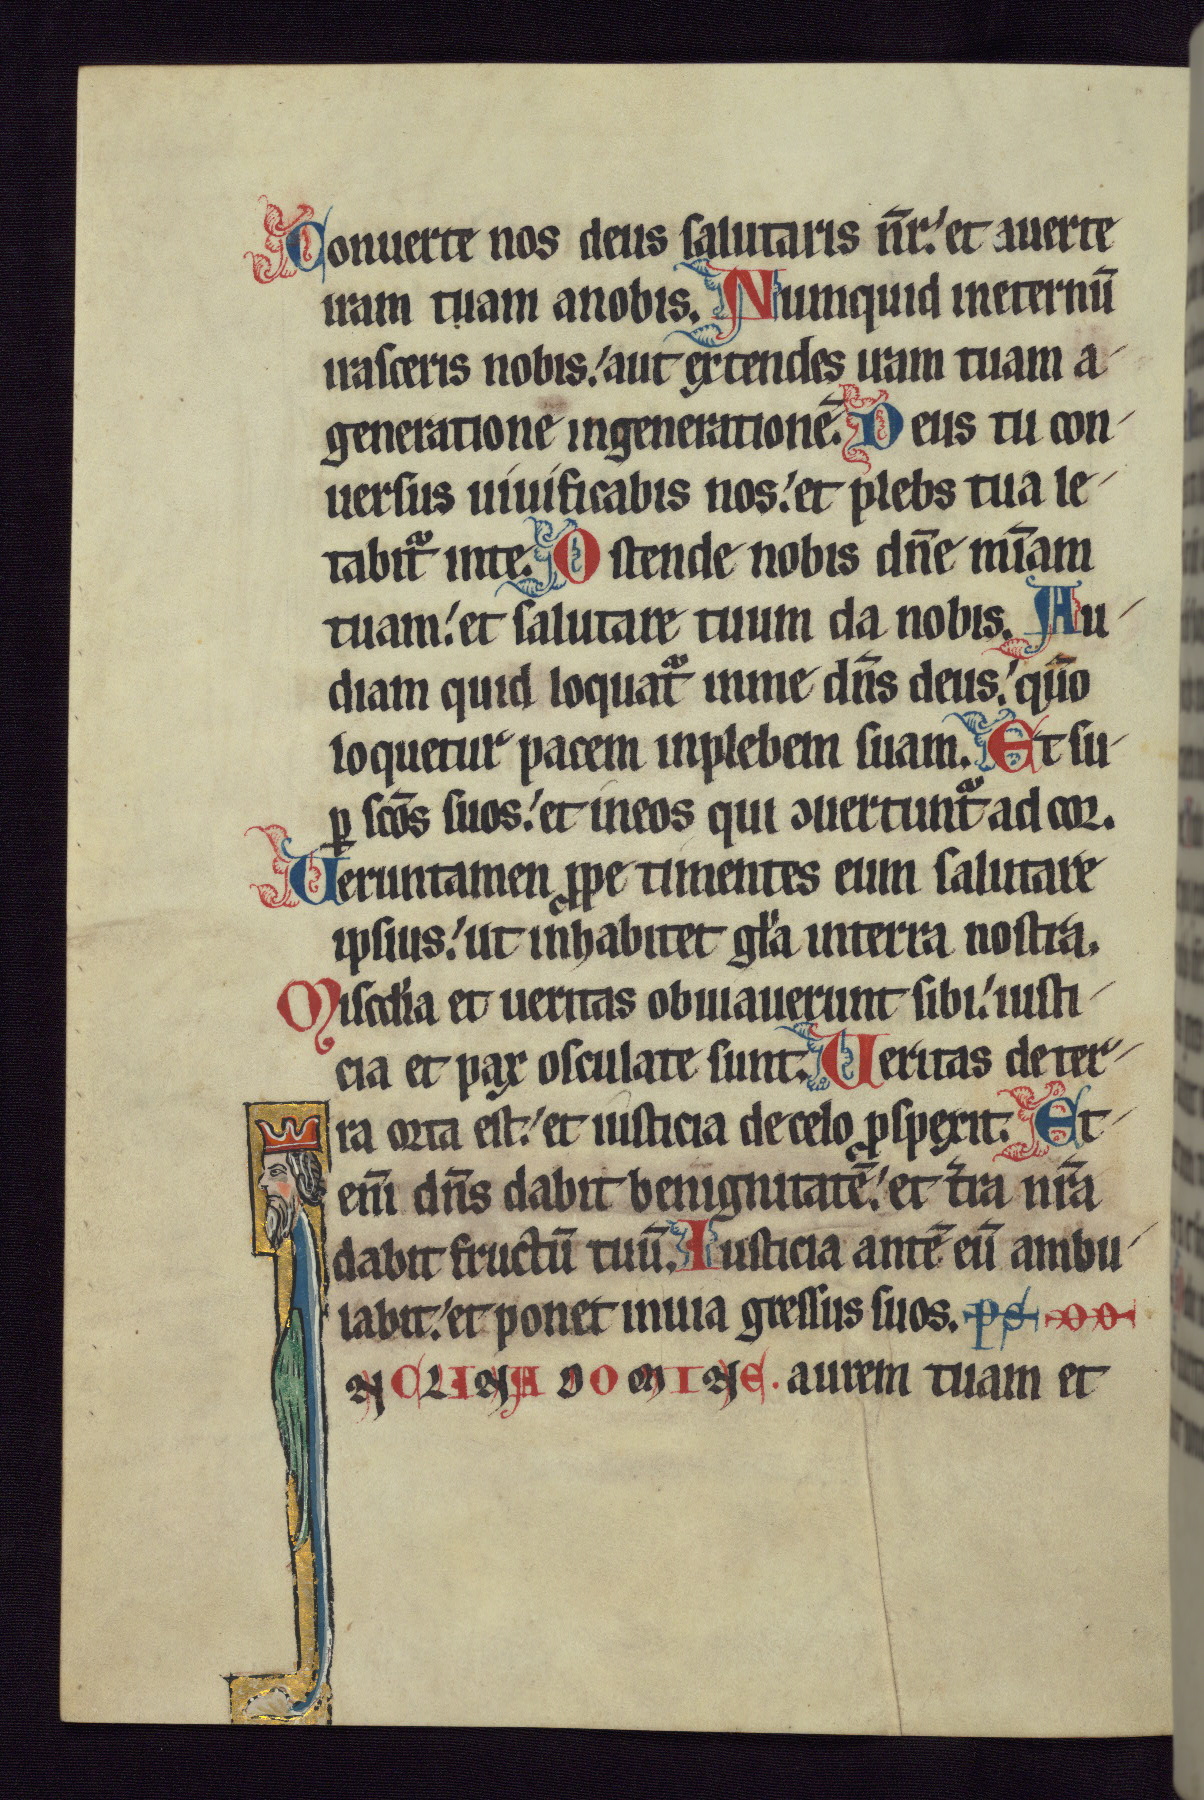 Conuerte nos deus salutaris n̄r. et auerte
iram tuam anobis. Numquid ineternū
irasceris nobis. aut extendes iram tuam a
generatione ingenerationē. Deus tu con
uersus uiuificabis nos. et plebs tua le
tabit᷑ inte. Ostende nobis dn̄e mīam
tuam. et salutare tuum da nobis. Au
diam quid loquat᷑ inme dn̄s deus. qm̄o
loquetur pacem inplebem suam. Et su
ꝑ scōs suos. et ineos qui ꝯuertunt᷑ ad cor.
Ueruntamen ꝓpe timentes eum salutare
ipsius. ut inhabitet gl̄a interra nostra.
Misc̄dia et ueritas obuiauerunt sibi. iusti
cia et pax osculate sunt. Ueritas deter
ra orta est. et iusticia decelo ꝓspexit. Et
eni̅ dn̄s dabit benignitatē. et t̄ra nr̄a
dabit fructū tuū. Iusticia antē eū ambu
labit. et ponet inuia gressus suos. ps
NCLINA DOMINE. aurem tuam et